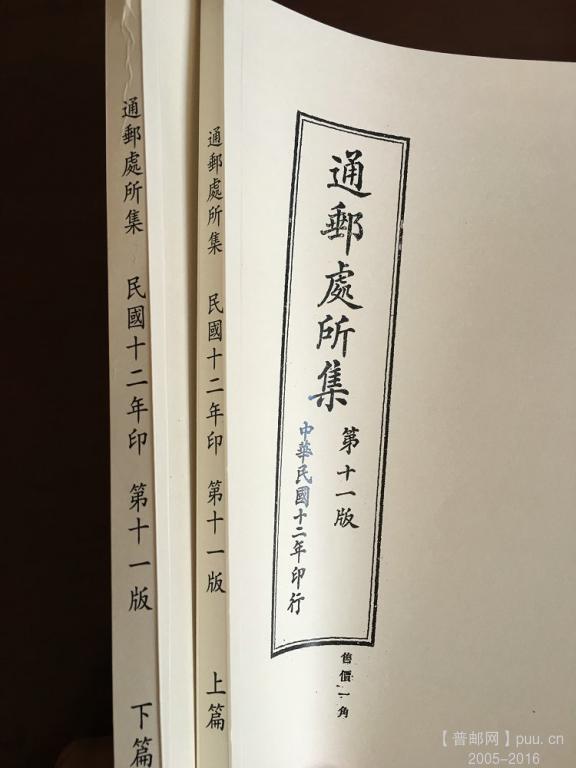 通郵處所集 民國十二年印 第十一版 下篇
通郵處所集 民國十二年印 第十一版 上篇
通郵處所集
第十一版
中華民國十二年印行
售價一角
【普邮网】puu.cn
2005-2016